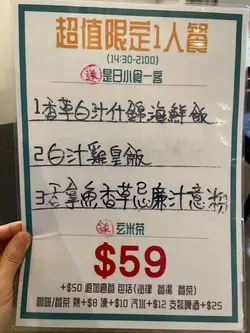 超值限定1人餐
(14:30-2100)
送 是日小食一客
1香草白汁什錦海鮮飯
2白汁雞皇飯
3吞拿魚香草忌廉汁意粉
送 玄米茶
$59
+$50 追加套餐 包括(沙律 餐湯 餐茶)
咖啡/餐茶 熱+$8 凍+$10 汽水+$12 支裝啤酒+$25